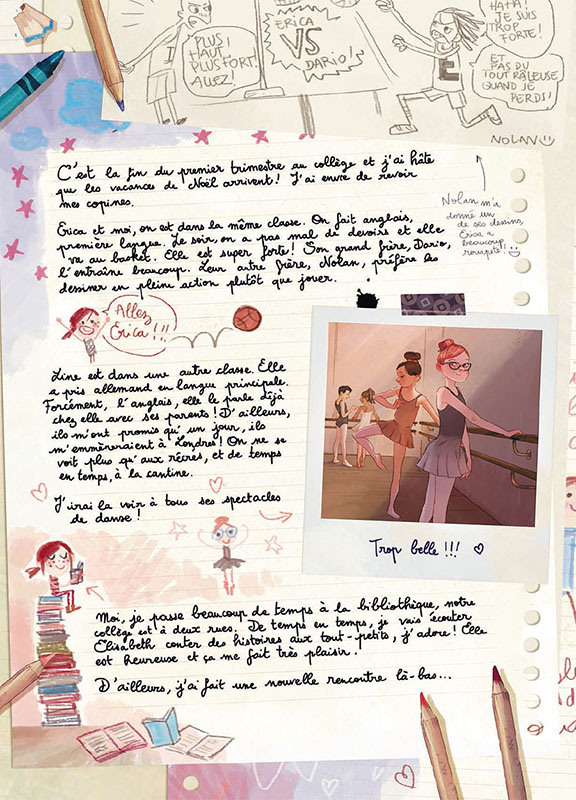 PLUS !
HAUT,
PLUS FORT !
ALLEZ !
ERICA
VS
DARIO !
HAHA !
JE SUIS
TROP
FORTE !
ET
PAS DU
TOUT RÂLEUSE
QUAND JE
PERDS !
I
E
NOLAN
C'est la fin du premier trimestre au collège et j'ai hâte
que les vacances de Noël arrivent ! J'ai envie de revoir
mes copines.
Nolan m'a
donné un
de ses dessins,
Erica a
beaucoup
rouspété !
Erica et moi, on est dans la même classe. On fait anglais,
première langue. Le soir, on a pas mal de devoirs et elle
va au basket. Elle est super forte ! Son grand frère, Dario,
l'entraîne beaucoup. Leur autre frère, Nolan, préfère les
dessiner en pleine action plutôt que jouer.
Allez
Erica !!!
Line est dans une autre classe. Elle
a pris allemand en langue principale.
Forcément, l'anglais, elle le parle déjà
chez elle avec ses parents ! D'ailleurs,
ils m'ont promis qu'un jour, ils
m'emmèneraient à Londres ! On ne se
voit plus qu'aux récrés, et de temps
en temps, à la cantine.
J'irai la voir à tous ses spectacles
de danse !
Trop belle !!!
Moi, je passe beaucoup de temps à la bibliothèque, notre
collège est à deux rues. De temps en temps, je vais écouter
Elisabeth conter des histoires aux tout-petits, j'adore ! Elle
est heureuse et ça me fait très plaisir.
D'ailleurs, j'ai fait une nouvelle rencontre là-bas...